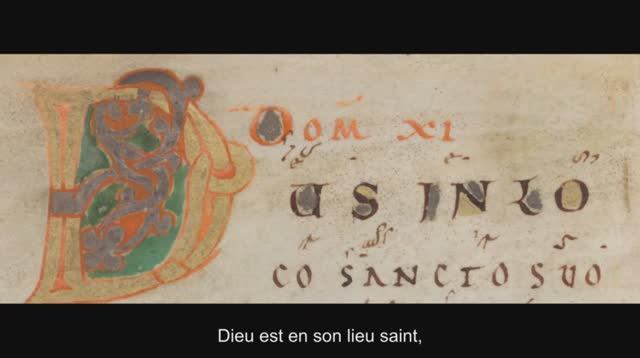 DOM XI
D US IN LO
CO SANCTO SUO
Dieu est en son lieu saint,